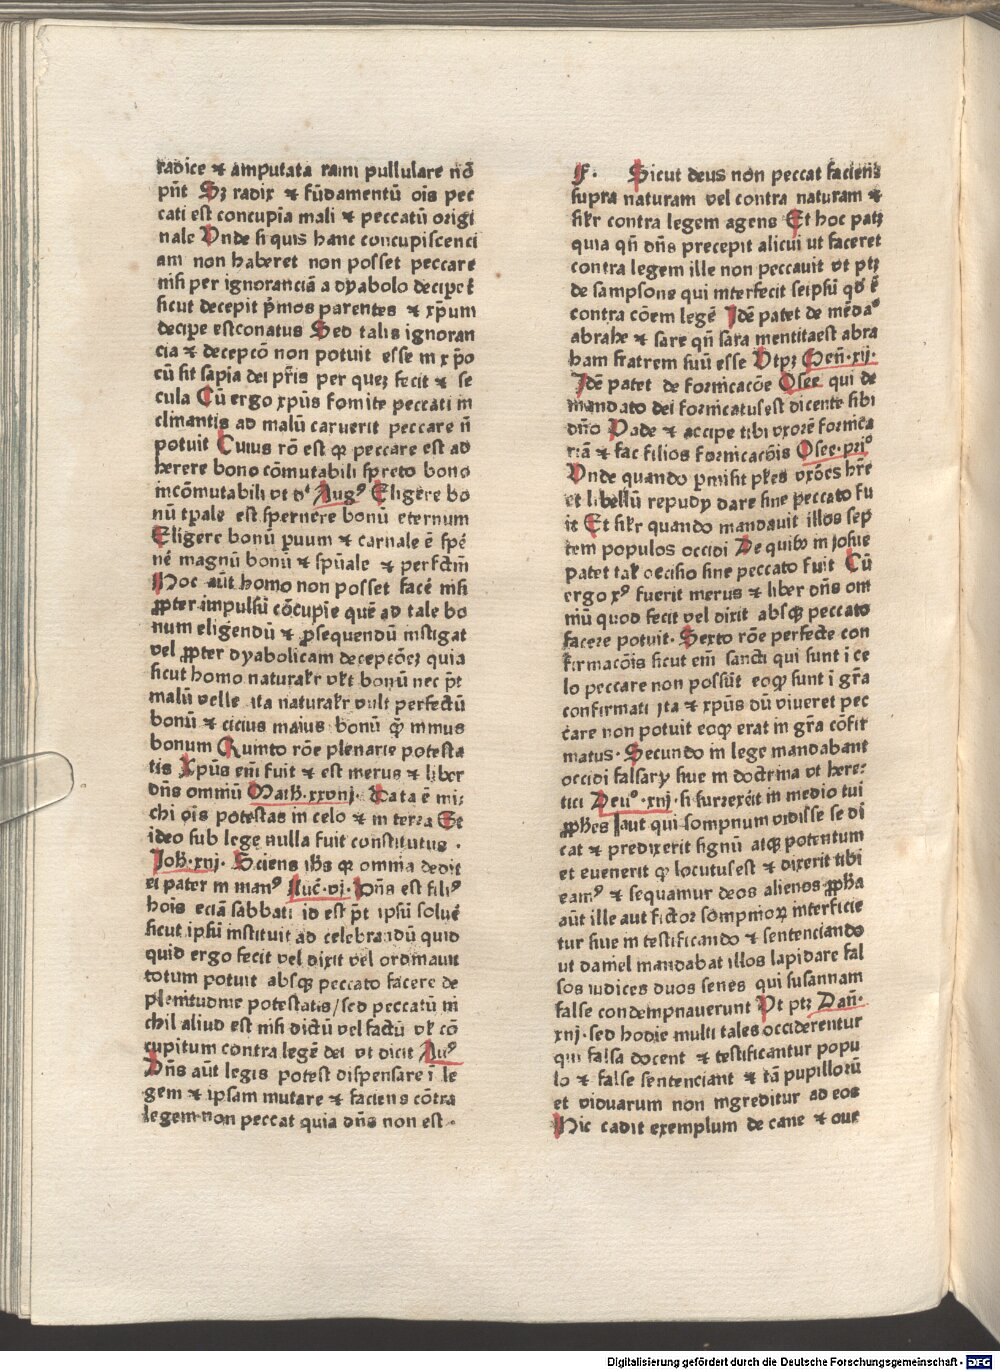 radice ⁊ amputata rami pullulare nō
pn̄t Sꝫ radix ⁊ fūdamentū oīs pec
cati est concupīa mali ⁊ peccatū origi
nale Vnde si quis hanc concupiscenci
am non haberet non posset peccare
nisi per ignoranciā a dyabolo decipet̄
sicut decepit p̄mos parentes ⁊ xp̄um
decipe estconatus Sed talis ignoran
cia ⁊ decepcō non potuit esse in xp̄o
cū sit sapīa dei pr̄is per quez fecit ⁊ se
cula Cū ergo xpūs fomite peccati in
clinantis ad malū caruerit peccare n̄
potuit Cuius rō est ꝙ peccare est ad
herere bono cōmutabili spreto bono
incōmutabili vt dt̄ Augꝰ Eligere bo
nū tp̄ale est spernere bonū eternum
Eligere bonū p̲uum ⁊ carnale ē spē
nē magnū bonū ⁊ spūale ⁊ perfectū
Hoc aūt homo non posset facē nisi
ꝓpter impulsū cōcupīe quē ad tale bo
num eligendū ⁊ ꝓsequendū instigat
vel ꝓpter dyabolicam decepcōeꝫ quia
sicut homo naturalr̄ vlt̄ bonū nec pt̄
malū velle ita naturalr̄ vult perfectū
bonū ⁊ cicius maius bonū ꝙ̄ minus
bonum Quinto rōe plenarie potesta
tis Xpūs em̄ fuit ⁊ est merus ⁊ liber
dn̄s omniū Math̄·xxviij· Data ē mi
chi oīs potestas in celo ⁊ in terra Et
ideo sub lege nulla fuit constitutus ·
Joh̄·xiij· Sciens ihs̄ ꝙ omnia dedit
ei pater in manꝰ Luc̄·vj· Dn̄s est filiꝰ
hoīs eciā sabbati id est pt̄ ipsū soluē
sicut ipsū instituit ad celebrandū quid
quid ergo fecit vel dixit vel ordinauit
totum potuit absqꝫ peccato facere de
plenitudine potestatis/sed peccatū ni
chil aliud est nisi dictū vel factū vl̄ cō
cupitum contra legē dei vt dicit Auꝰ
Dn̄s aūt legis potest dispensare ī le
gem ⁊ ipsam mutare ⁊ faciens cōtra
legem non peccat quia dn̄s non est ·
F· Sicut deus non peccat faciens
supra naturam vel contra naturam ⁊
silr̄ contra legem agens Et hoc patꝫ
quia qn̄ dn̄s precepit alicui ut faceret
contra legem ille non peccauit vt ptꝫ
de sampsone qui interfecit seipsū qd̄ ē
contra cōem legē Idē patet de mēdaꝰ
abrahe ⁊ sare qn̄ sara mentitaest abra
ham fratrem suū esse Vtptꝫ Gen̄·xij·
Idē patet de fornicacōe Osee qui de
mandato dei fornicatusest dicente sibi
dn̄o Vade ⁊ accipe tibi vxorē fornica
riā ⁊ fac filios fornicacōis Osee·priº
Vnde quando p̲misit pl̄es vxōes hr̄e
et libellū repudy dare sine peccato fu
it Et silr̄ quando mandauit illos sep
tem populos occidi De quibꝰ in iosue
patet tal̄ occisio sine peccato fuit Cū
ergo xꝰ fuerit merus ⁊ liber dn̄s om
niū quod fecit vel dixit absqꝫ peccato
facere potuit· Sexto rōe perfecte con
firmacōis sicut em̄ sancti qui sunt ī ce
lo peccare non possūt eoꝙ sunt ī gr̄a
confirmati ita ⁊ xpūs dū viueret pec
care non potuit eoꝙ erat in gr̄a cōfir
matus· Secundo in lege mandabant̄
occidi falsary siue in doctrina vt here-
tici Deuº·xiij· si surrexēit in medio tui
ꝓphes aut qui sompnum vidisse se di
cat ⁊ predixerit signū atqꝫ potentum
et euenerit ꝙ locutusest ⁊ dixerit tibi
eamꝰ ⁊ sequamur deos alienos ꝓpha
aūt ille aut fictor sompnioꝝ interficie
tur siue in testificando ⁊ sentenciando
ut daniel mandabat illos lapidare fal
sos iudices duos senes qui susannam
false condempnauerunt Vt ptꝫ Dan̄·
xiij·sed hodie multi tales occiderentur
qui falsa docent ⁊ testificantur popu
lo ⁊ false sentenciant ⁊ tā pupillorū
et viduarum non ingreditur ad eos
Hic cadit exemplum de cane ⁊ oue
Digitalisierung gefördert durch die Deutsche Forschungsgemeinschaft - DFG